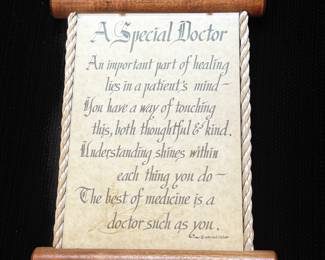 A Special Doctor
An important part of healing
lies in a patient's mind—
You have a way of touching
this, both thoughtful & kind.
Understanding shines within
each thing you do—
The best of medicine is a
doctor such as you.